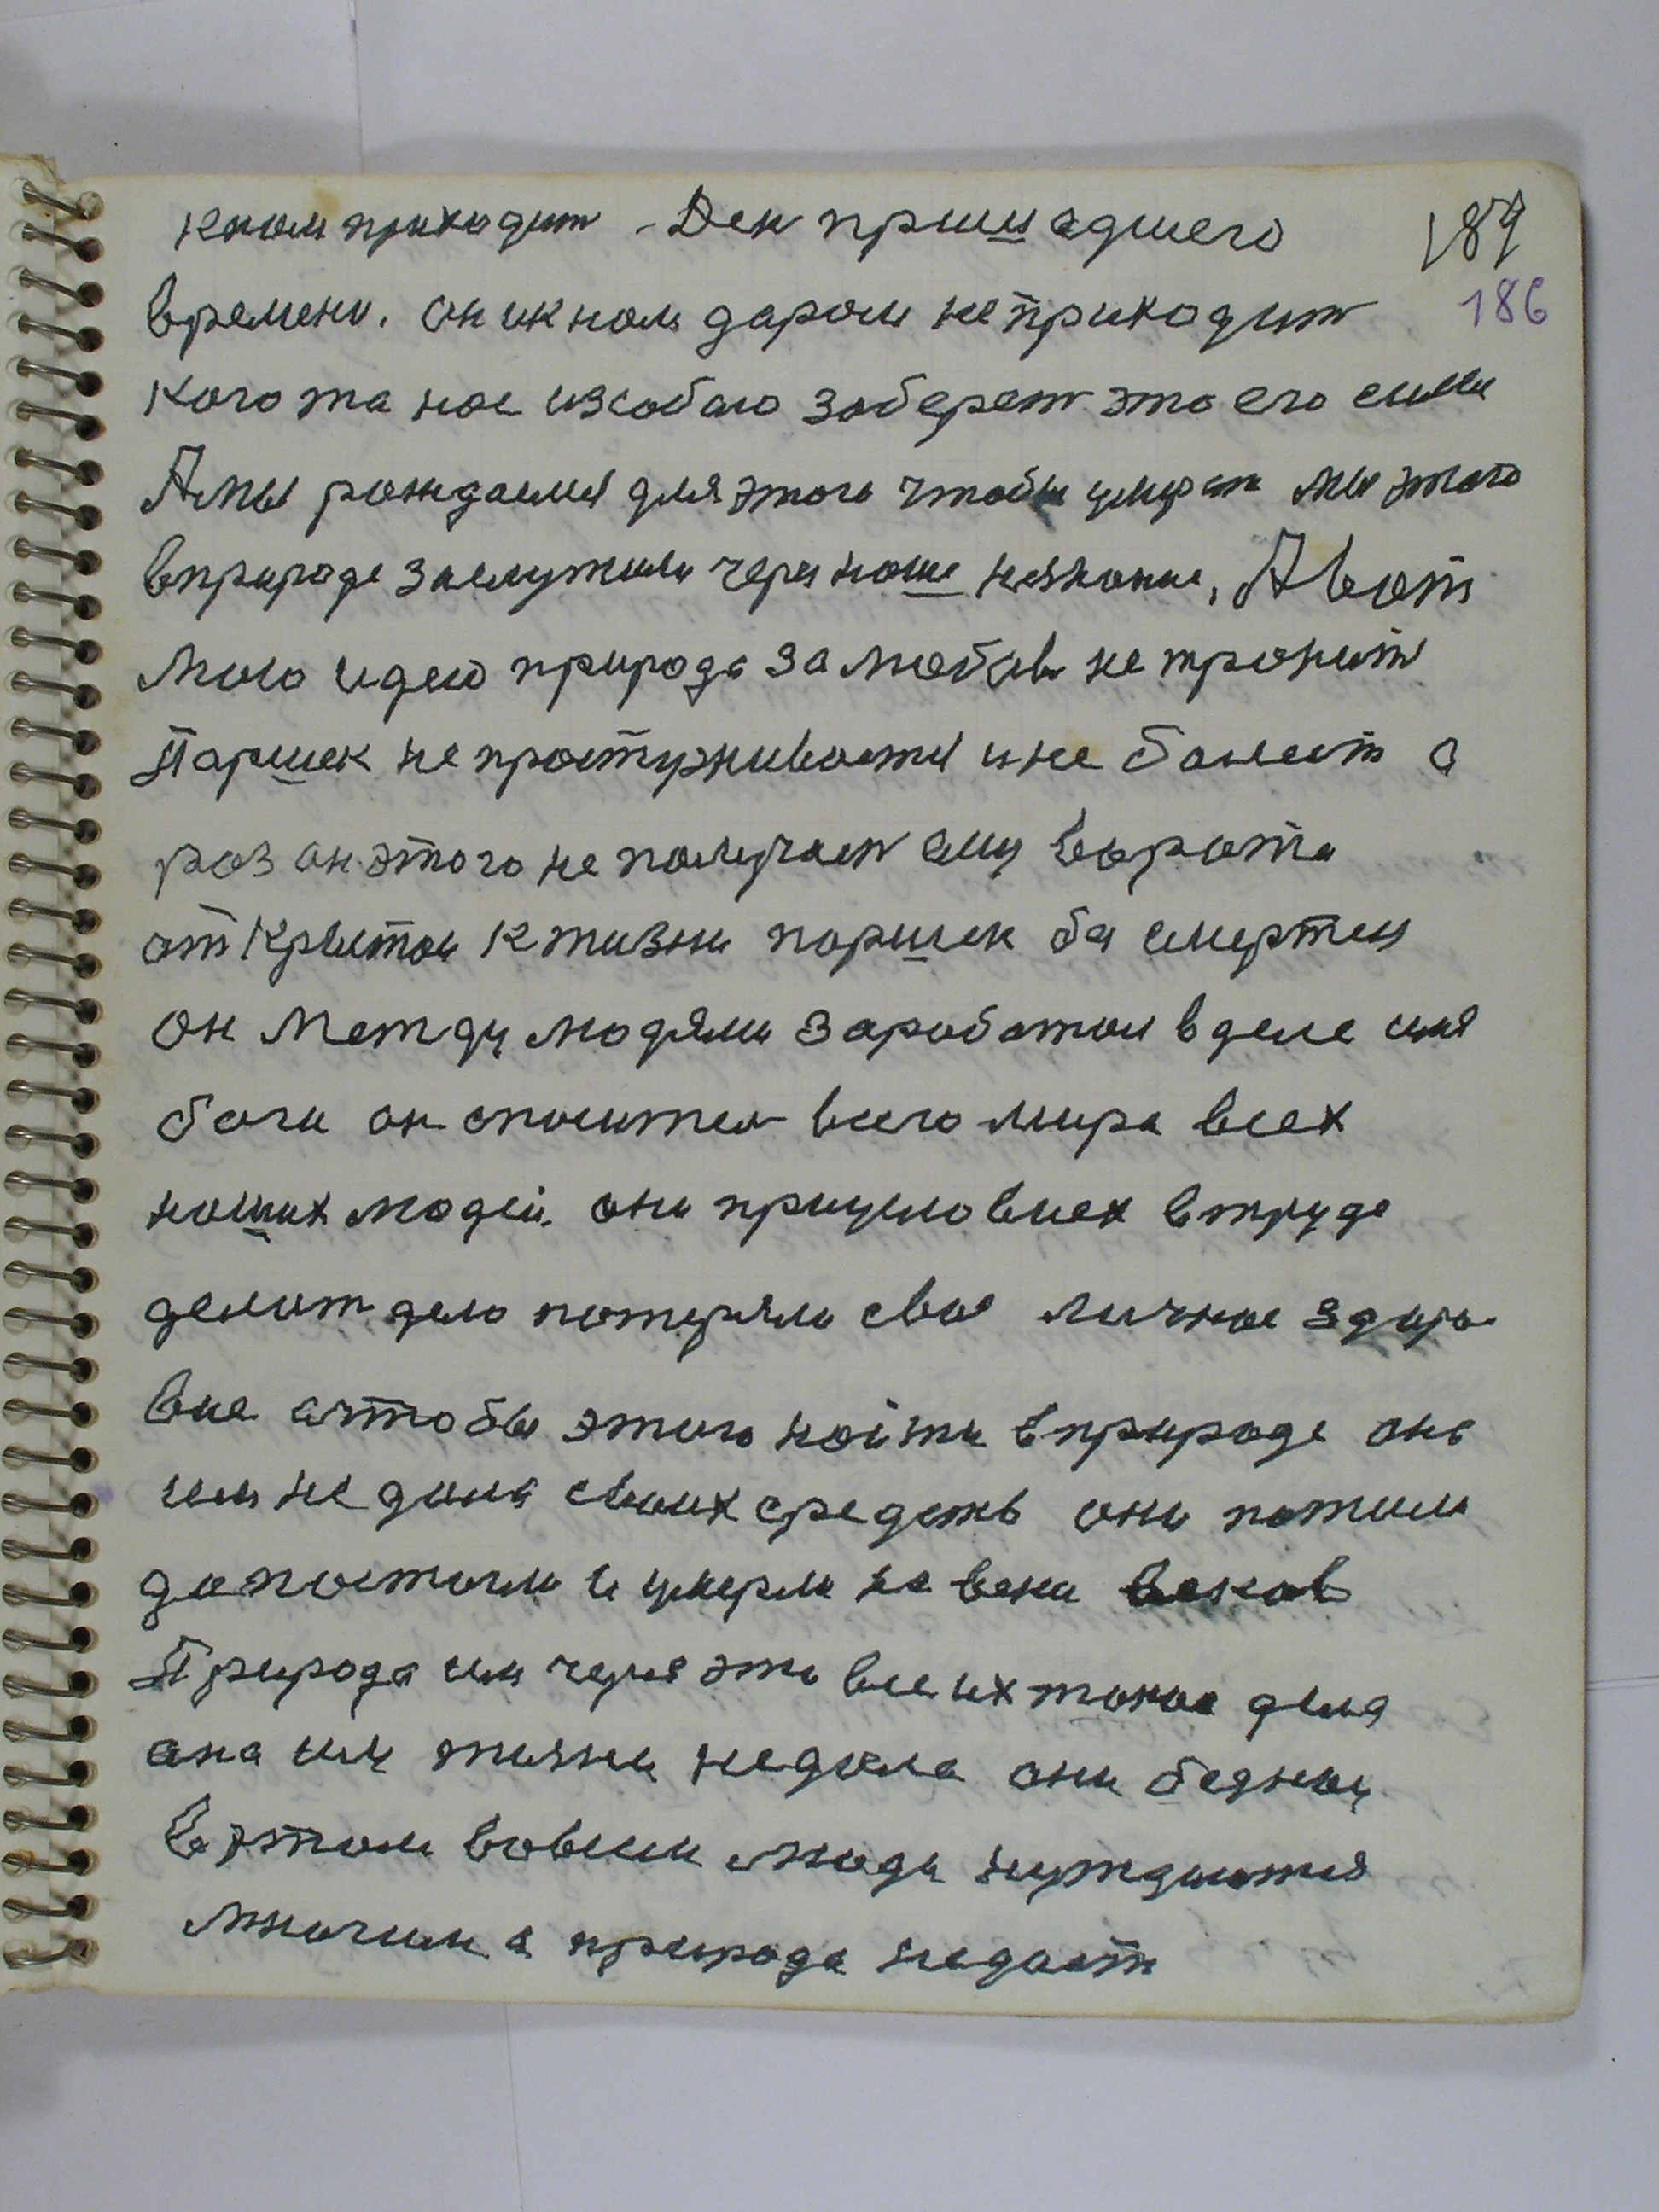 кнам приходит - Ден пришедшего 189
времени. он икнам даром неприходит 186
кого та нас изсобою заберет это его силы
Амы рождаемся дляэтого чтобы умират мы этого
вприроде заслужили через наше незнание, А вот
мою идею природа за любов не тронит
Паршек не простуживается ине болеет а
раз он этого не получает ему ворота
открытои к жизни паршек бя смертец
он между людями заработал вделе имя
бога он спаситель всего мира всех
наших людей. они
делают дело потеряли свое личное здоро
вие ачтобы этого найти вприроде она
им не дала своих средств они пожили
допостигли и умерли на веки веков
Природа им через эти все ихтакие дела
она им жизни недала они бедные
в этом вовсем люди нуждаются
многим а природа недает